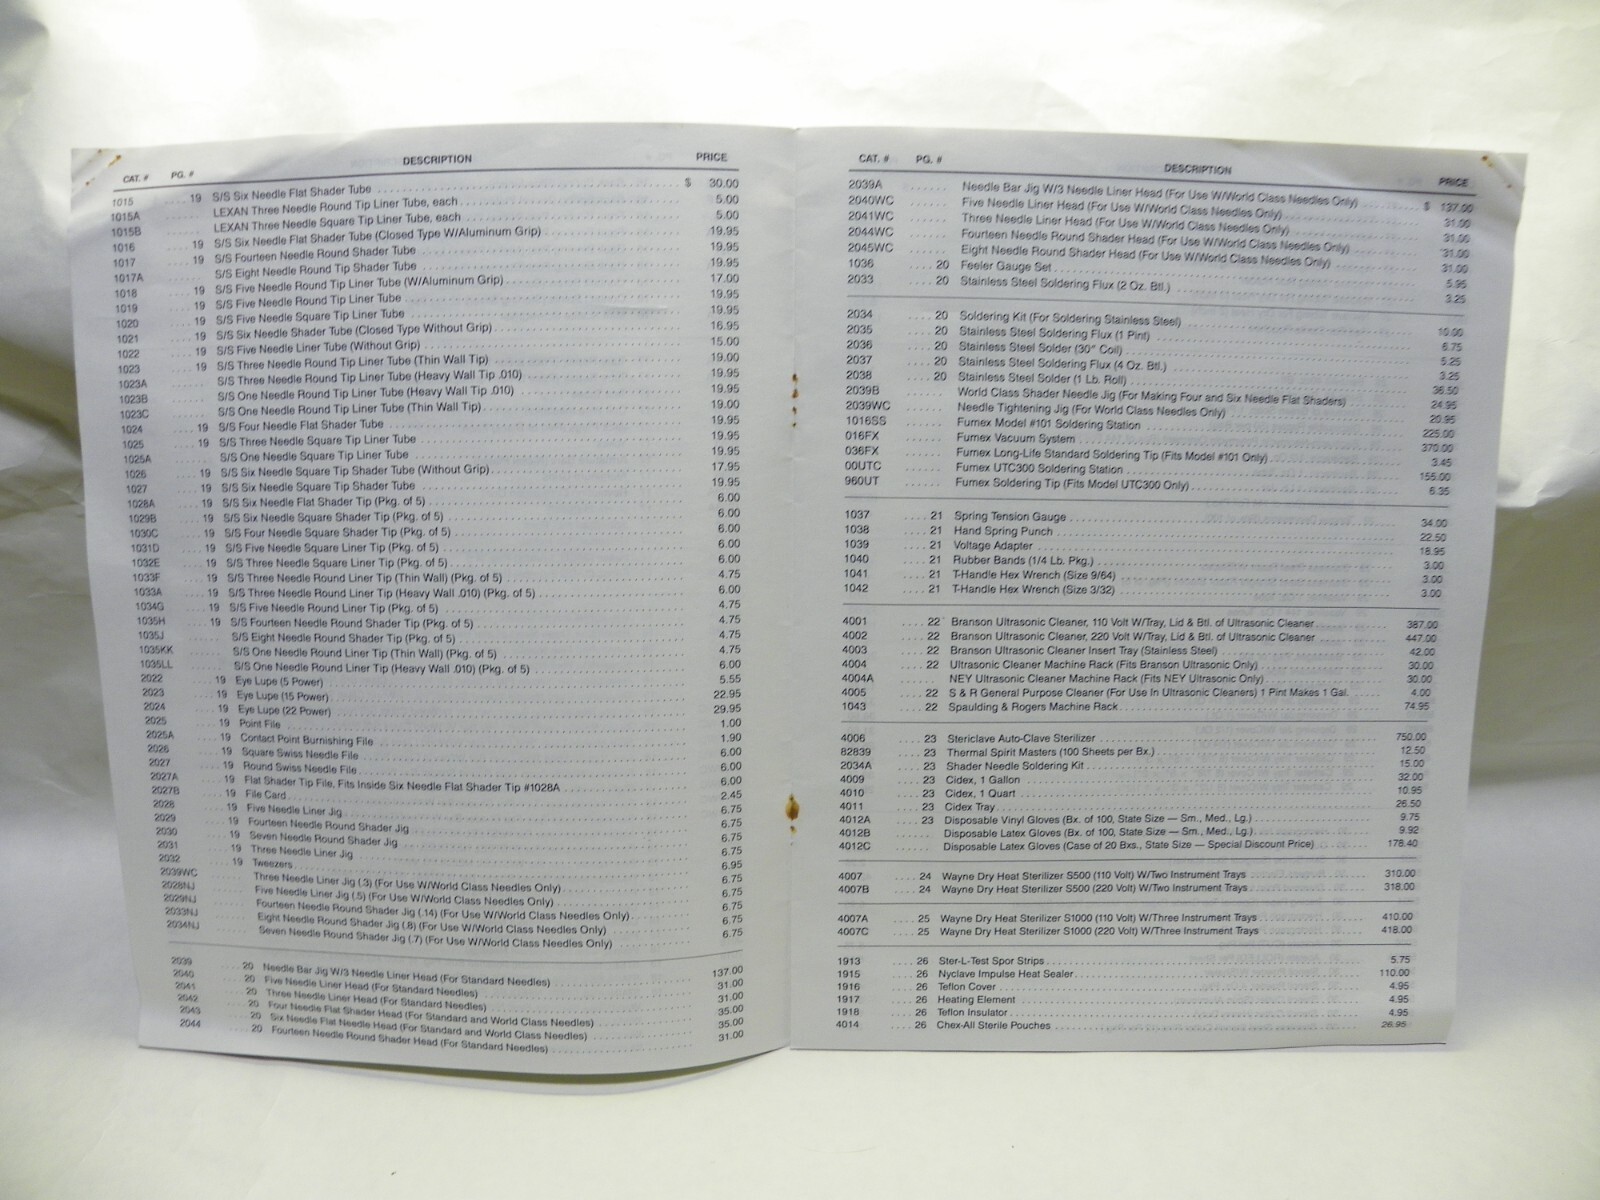 CAT. # PG. # DESCRIPTION PRICE
1015 .... 19 S/S Six Needle Flat Shader Tube $ 30.00
1015A LEXAN Three Needle Round Tip Liner Tube, each 5.00
1015B LEXAN Three Needle Square Tip Liner Tube, each 5.00
1016 .... 19 S/S Six Needle Flat Shader Tube (Closed Type W/Aluminum Grip) 19.95
1017 .... 19 S/S Fourteen Needle Round Shader Tube 19.95
1017A S/S Eight Needle Round Tip Shader Tube 19.95
1018 .... 19 S/S Five Needle Round Tip Liner Tube (W/Aluminum Grip) 17.00
1019 .... 19 S/S Five Needle Round Tip Liner Tube 19.95
1020 .... 19 S/S Five Needle Square Tip Liner Tube 19.95
1021 .... 19 S/S Six Needle Shader Tube (Closed Type Without Grip) 16.95
1022 .... 19 S/S Five Needle Liner Tube (Without Grip) 15.00
1023 .... 19 S/S Three Needle Round Tip Liner Tube (Thin Wall Tip) 19.00
1023A S/S Three Needle Round Tip Liner Tube (Heavy Wall Tip .010) 19.95
1023B S/S One Needle Round Tip Liner Tube (Heavy Wall Tip .010) 19.95
1023C S/S One Needle Round Tip Liner Tube (Thin Wall Tip) 19.00
1024 .... 19 S/S Four Needle Flat Shader Tube 19.95
1025 .... 19 S/S Three Needle Square Tip Liner Tube 19.95
1025A S/S One Needle Square Tip Liner Tube 19.95
1026 .... 19 S/S Six Needle Square Tip Shader Tube (Without Grip) 17.95
1027 .... 19 S/S Six Needle Square Tip Shader Tube 19.95
1028A .... 19 S/S Six Needle Flat Shader Tip (Pkg. of 5) 6.00
1029B .... 19 S/S Six Needle Square Shader Tip (Pkg. of 5) 6.00
1030C .... 19 S/S Four Needle Square Shader Tip (Pkg. of 5) 6.00
1031D .... 19 S/S Five Needle Square Liner Tip (Pkg. of 5) 6.00
1032E .... 19 S/S Three Needle Square Liner Tip (Pkg. of 5) 6.00
1033F .... 19 S/S Three Needle Round Liner Tip (Thin Wall) (Pkg. of 5) 4.75
1033A .... 19 S/S Three Needle Round Liner Tip (Heavy Wall .010) (Pkg. of 5) 6.00
1034G .... 19 S/S Five Needle Round Liner Tip (Pkg. of 5) 4.75
1035H .... 19 S/S Fourteen Needle Round Shader Tip (Pkg. of 5) 4.75
1035J S/S Eight Needle Round Shader Tip (Pkg. of 5) 4.75
1035KK S/S One Needle Round Liner Tip (Thin Wall) (Pkg. of 5) 4.75
1035LL S/S One Needle Round Liner Tip (Heavy Wall .010) (Pkg. of 5) 6.00
2022 .... 19 Eye Lupe (5 Power) 5.55
2023 .... 19 Eye Lupe (15 Power) 22.95
2024 .... 19 Eye Lupe (22 Power) 29.95
2025 .... 19 Point File 1.00
2025A .... 19 Contact Point Burnishing File 1.90
2026 .... 19 Square Swiss Needle File 6.00
2027 .... 19 Round Swiss Needle File 6.00
2027A .... 19 Flat Shader Tip File, Fits Inside Six Needle Flat Shader Tip #1028A 6.00
2027B .... 19 File Card 2.45
2028 .... 19 Five Needle Liner Jig 6.75
2029 .... 19 Fourteen Needle Round Shader Jig 6.75
2030 .... 19 Seven Needle Round Shader Jig 6.75
2031 .... 19 Three Needle Liner Jig 6.75
2032 .... 19 Tweezers 6.95
2039WC Three Needle Liner Jig (.3) (For Use W/World Class Needles Only) 6.75
2028NJ Five Needle Liner Jig (.5) (For Use W/World Class Needles Only) 6.75
2029NJ Fourteen Needle Round Shader Jig (.14) (For Use W/World Class Needles Only) 6.75
2033NJ Eight Needle Round Shader Jig (.8) (For Use W/World Class Needles Only) 6.75
2034NJ Seven Needle Round Shader Jig (.7) (For Use W/World Class Needles Only) 6.75
2039 .... 20 Needle Bar Jig W/3 Needle Liner Head (For Standard Needles) 137.00
2040 .... 20 Five Needle Liner Head (For Standard Needles) 31.00
2041 .... 20 Three Needle Liner Head (For Standard Needles) 31.00
2042 .... 20 Four Needle Flat Shader Head (For Standard and World Class Needles) 35.00
2043 .... 20 Six Needle Flat Needle Head (For Standard and World Class Needles) 35.00
2044 .... 20 Fourteen Needle Round Shader Head (For Standard Needles) 31.00
CAT. # PG. # DESCRIPTION PRICE
2039A ...... Needle Bar Jig W/3 Needle Liner Head (For Use W/World Class Needles Only) $ 137.00
2040WC ...... Five Needle Liner Head (For Use W/World Class Needles Only) 31.00
2041WC ...... Three Needle Liner Head (For Use W/World Class Needles Only) 31.00
2044WC ...... Fourteen Needle Round Shader Head (For Use W/World Class Needles Only) 31.00
2045WC ...... Eight Needle Round Shader Head (For Use W/World Class Needles Only) 31.00
1036 .... 20 Feeler Gauge Set 5.95
2033 .... 20 Stainless Steel Soldering Flux (2 Oz. Btl.) 3.25
2034 .... 20 Soldering Kit (For Soldering Stainless Steel) 10.00
2035 .... 20 Stainless Steel Soldering Flux (1 Pint) 6.75
2036 .... 20 Stainless Steel Solder (30" Coil) 5.25
2037 .... 20 Stainless Steel Soldering Flux (4 Oz. Btl.) 3.25
2038 .... 20 Stainless Steel Solder (1 Lb. Roll) 36.50
2039B ...... World Class Shader Needle Jig (For Making Four and Six Needle Flat Shaders) 24.95
2039WC ...... Needle Tightening Jig (For World Class Needles Only) 20.95
1016SS ...... Fumex Model #101 Soldering Station 225.00
016FX ...... Fumex Vacuum System 370.00
036FX ...... Fumex Long-Life Standard Soldering Tip (Fits Model #101 Only) 3.45
00UTC ...... Fumex UTC300 Soldering Station 155.00
960UT ...... Fumex Soldering Tip (Fits Model UTC300 Only) 6.35
1037 .... 21 Spring Tension Gauge 34.00
1038 .... 21 Hand Spring Punch 22.50
1039 .... 21 Voltage Adapter 18.95
1040 .... 21 Rubber Bands (1/4 Lb. Pkg.) 3.00
1041 .... 21 T-Handle Hex Wrench (Size 9/64) 3.00
1042 .... 21 T-Handle Hex Wrench (Size 3/32) 3.00
4001 .... 22 Branson Ultrasonic Cleaner, 110 Volt W/Tray, Lid & Btl. of Ultrasonic Cleaner 387.00
4002 .... 22 Branson Ultrasonic Cleaner, 220 Volt W/Tray, Lid & Btl. of Ultrasonic Cleaner 447.00
4003 .... 22 Branson Ultrasonic Cleaner Insert Tray (Stainless Steel) 42.00
4004 .... 22 Ultrasonic Cleaner Machine Rack (Fits Branson Ultrasonic Only) 30.00
4004A ...... NEY Ultrasonic Cleaner Machine Rack (Fits NEY Ultrasonic Only) 30.00
4005 .... 22 S & R General Purpose Cleaner (For Use In Ultrasonic Cleaners) 1 Pint Makes 1 Gal. 4.00
1043 .... 22 Spaulding & Rogers Machine Rack 74.95
4006 .... 23 Stericlave Auto-Clave Sterilizer 750.00
82839 .... 23 Thermal Spirit Masters (100 Sheets per Bx.) 12.50
2034A .... 23 Shader Needle Soldering Kit 15.00
4009 .... 23 Cidex, 1 Gallon 32.00
4010 .... 23 Cidex, 1 Quart 10.95
4011 .... 23 Cidex Tray 26.50
4012A .... 23 Disposable Vinyl Gloves (Bx. of 100, State Size — Sm., Med., Lg.) 9.75
4012B ...... Disposable Latex Gloves (Bx. of 100, State Size — Sm., Med., Lg.) 9.92
4012C ...... Disposable Latex Gloves (Case of 20 Bxs., State Size — Special Discount Price) 178.40
4007 .... 24 Wayne Dry Heat Sterilizer S500 (110 Volt) W/Two Instrument Trays 310.00
4007B .... 24 Wayne Dry Heat Sterilizer S500 (220 Volt) W/Two Instrument Trays 318.00
4007A .... 25 Wayne Dry Heat Sterilizer S1000 (110 Volt) W/Three Instrument Trays 410.00
4007C .... 25 Wayne Dry Heat Sterilizer S1000 (220 Volt) W/Three Instrument Trays 418.00
1913 .... 26 Ster-L-Test Spor Strips 5.75
1915 .... 26 Nyclave Impulse Heat Sealer 110.00
1916 .... 26 Teflon Cover 4.95
1917 .... 26 Heating Element 4.95
1918 .... 26 Teflon Insulator 4.95
4014 .... 26 Chex-All Sterile Pouches 26.95